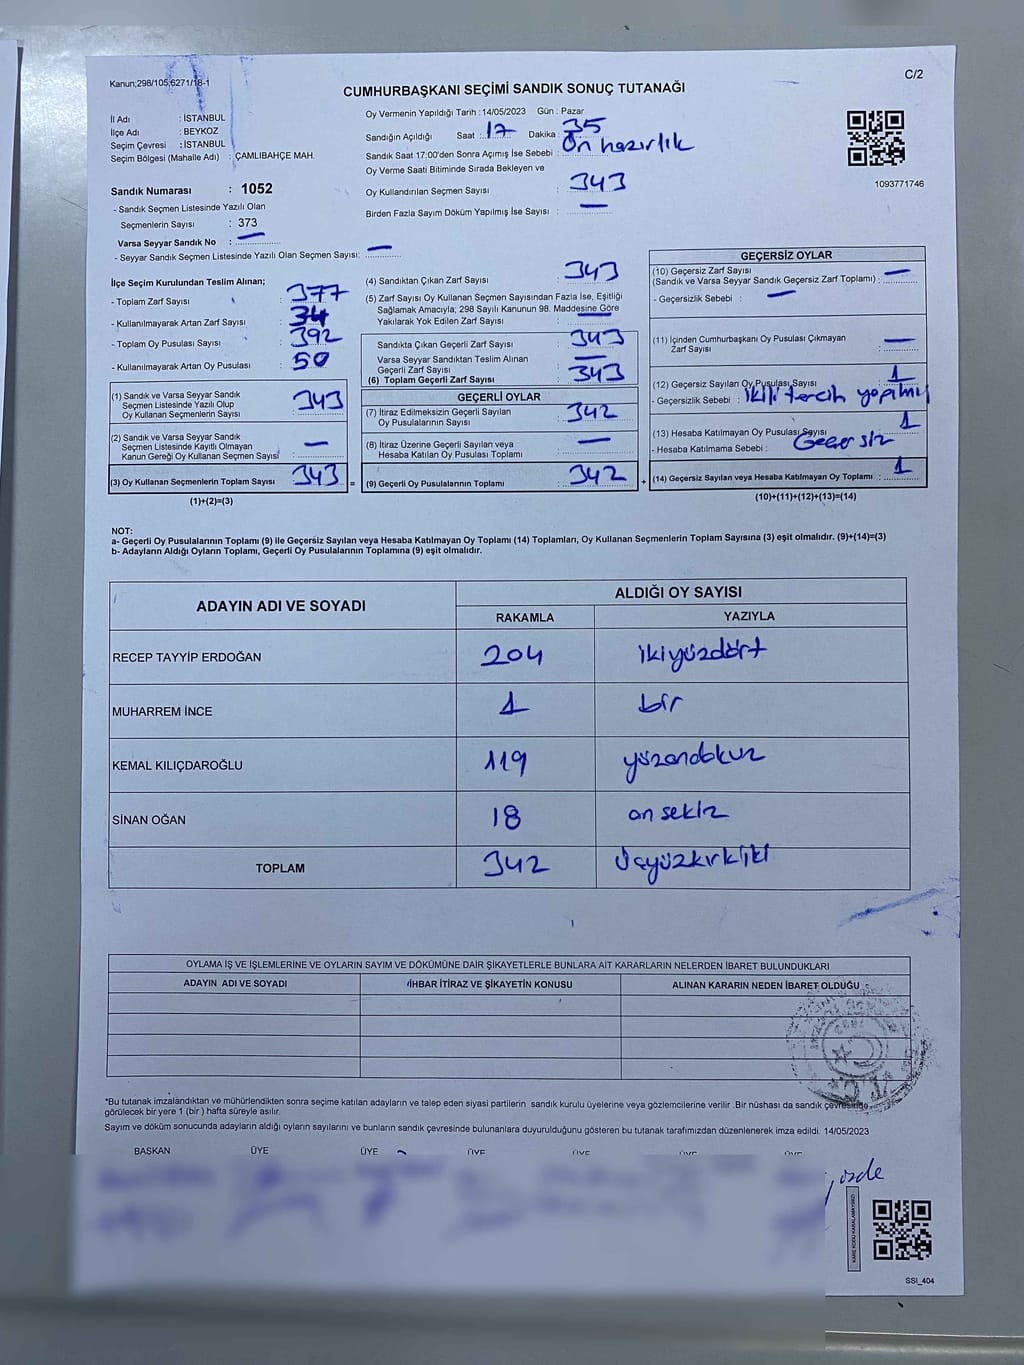 Kanun;298/105,6271/18-1
C/2
CUMHURBAŞKANI SEÇİMİ SANDIK SONUÇ TUTANAĞI
İl Adı : İSTANBUL
İlçe Adı : BEYKOZ
Seçim Çevresi : İSTANBUL
Seçim Bölgesi (Mahalle Adı) : ÇAMLIBAHÇE MAH.
Sandık Numarası : 1052
- Sandık Seçmen Listesinde Yazılı Olan
Seçmenlerin Sayısı : 373
Varsa Seyyar Sandık No : —
- Seyyar Sandık Seçmen Listesinde Yazılı Olan Seçmen Sayısı: —
Oy Vermenin Yapıldığı Tarih : 14/05/2023 Gün : Pazar
Sandığın Açıldığı Saat : 17 Dakika : 35
Sandık Saat 17:00'den Sonra Açımış İse Sebebi : Ön hazırlık
Oy Verme Saati Bitiminde Sırada Bekleyen ve
Oy Kullandırılan Seçmen Sayısı : 343
Birden Fazla Sayım Döküm Yapılmış İse Sayısı : —
1093771746
İlçe Seçim Kurulundan Teslim Alınan;
- Toplam Zarf Sayısı : 377
- Kullanılmayarak Artan Zarf Sayısı : 34
- Toplam Oy Pusulası Sayısı : 392
- Kullanılmayarak Artan Oy Pusulası : 50
(1) Sandık ve Varsa Seyyar Sandık
Seçmen Listesinde Yazılı Olup
Oy Kullanan Seçmenlerin Sayısı : 343
(2) Sandık ve Varsa Seyyar Sandık
Seçmen Listesinde Kayıtlı Olmayan
Kanun Gereği Oy Kullanan Seçmen Sayısı : —
(3) Oy Kullanan Seçmenlerin Toplam Sayısı : 343 =
(1)+(2)=(3)
(4) Sandıktan Çıkan Zarf Sayısı : 343
(5) Zarf Sayısı Oy Kullanan Seçmen Sayısından Fazla İse, Eşitliği
Sağlamak Amacıyla; 298 Sayılı Kanunun 98. Maddesine Göre
Yakılarak Yok Edilen Zarf Sayısı : —
Sandıkta Çıkan Geçerli Zarf Sayısı : 343
Varsa Seyyar Sandıktan Teslim Alınan
Geçerli Zarf Sayısı : —
(6) Toplam Geçerli Zarf Sayısı : 343
GEÇERLİ OYLAR
(7) İtiraz Edilmeksizin Geçerli Sayılan
Oy Pusulalarının Sayısı : 342
(8) İtiraz Üzerine Geçerli Sayılan veya
Hesaba Katılan Oy Pusulası Toplamı : —
(9) Geçerli Oy Pusulalarının Toplamı : 342 +
GEÇERSİZ OYLAR
(10) Geçersiz Zarf Sayısı
(Sandık ve Varsa Seyyar Sandık Geçersiz Zarf Toplamı) : —
- Geçersizlik Sebebi : —
(11) İçinden Cumhurbaşkanı Oy Pusulası Çıkmayan
Zarf Sayısı : —
(12) Geçersiz Sayılan Oy Pusulası Sayısı : 1
- Geçersizlik Sebebi : İkili tercih yapılmış
(13) Hesaba Katılmayan Oy Pusulası Sayısı : 1
- Hesaba Katılmama Sebebi : Geçersiz
(14) Geçersiz Sayılan veya Hesaba Katılmayan Oy Toplamı : 1
(10)+(11)+(12)+(13)=(14)
NOT:
a- Geçerli Oy Pusulalarının Toplamı (9) ile Geçersiz Sayılan veya Hesaba Katılmayan Oy Toplamı (14) Toplamları, Oy Kullanan Seçmenlerin Toplam Sayısına (3) eşit olmalıdır. (9)+(14)=(3)
b- Adayların Aldığı Oyların Toplamı, Geçerli Oy Pusulalarının Toplamına (9) eşit olmalıdır.
ADAYIN ADI VE SOYADI
ALDIĞI OY SAYISI
RAKAMLA YAZIYLA
RECEP TAYYİP ERDOĞAN 204 ikiyüzdört
MUHARREM İNCE 1 bir
KEMAL KILIÇDAROĞLU 119 yüzondokuz
SİNAN OĞAN 18 on sekiz
TOPLAM 342 Üçyüzkırkiki
OYLAMA İŞ VE İŞLEMLERİNE VE OYLARIN SAYIM VE DÖKÜMÜNE DAİR ŞİKAYETLERLE BUNLARA AİT KARARLARIN NELERDEN İBARET BULUNDUKLARI
ADAYIN ADI VE SOYADI İHBAR İTİRAZ VE ŞİKAYETİN KONUSU ALINAN KARARIN NEDEN İBARET OLDUĞU
*Bu tutanak imzalandıktan ve mühürlendikten sonra seçime katılan adayların ve talep eden siyasi partilerin sandık kurulu üyelerine veya gözlemcilerine verilir .Bir nüshası da sandık çevresinde
görülecek bir yere 1 (bir ) hafta süreyle asılır.
Sayım ve döküm sonucunda adayların aldığı oyların sayılarını ve bunların sandık çevresinde bulunanlara duyurulduğunu gösteren bu tutanak tarafımızdan düzenlenerek imza edildi. 14/05/2023
BAŞKAN ÜYE ÜYE ÜYE ÜYE ÜYE ÜYE
KARE KODU KARALAMAYINIZ!
SSI_404